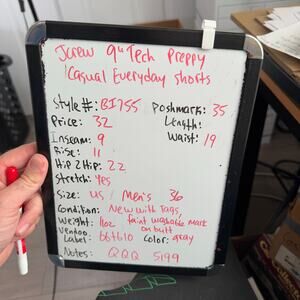 Jcrew 9" Tech Preppy
Casual Everyday Shorts
Style#: BI755 Poshmark: 35
Price: 32 Length:
Inseam: 9 Waist: 19
Rise: 11
Hip 2 Hip: 22
Stretch: Yes
Size: US / Men's 36
Condition: New with Tags,
Weight: 11oz faint washable mark
on butt
Vendoo
Label: 667610 Color: gray
Notes: QQQ 5199